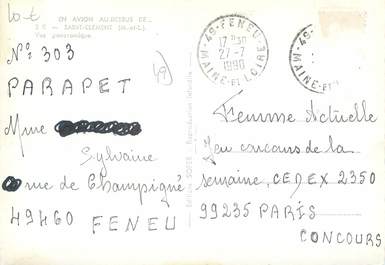 10-t
EN AVION AU-DESSUS DE...
SAINT-CLÉMENT (M.-et-L.)
Vue panoramique
N: 303
PARAPET
Mme
Sylvaine
rue de Champigné
49460 FENEU
49
49-FENEU
17H30
27-7
1990
MAINE-ET-LOIRE
Reproduction interdite
Femme Actuelle
Jeu concours de la
semaine, CEDEX 2350
99235 PARIS
CONCOURS